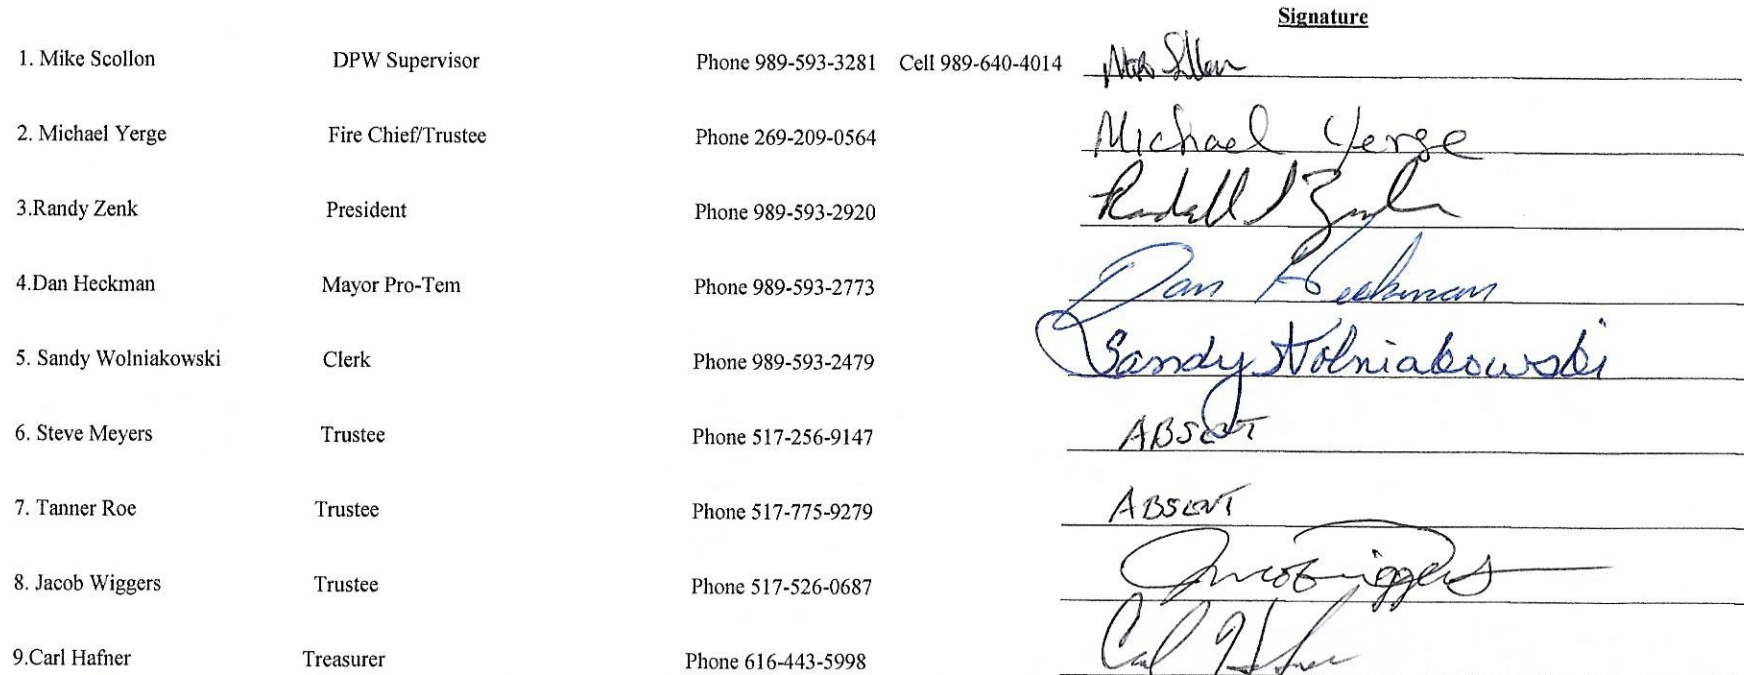 Signature
1. Mike Scollon DPW Supervisor Phone 989-593-3281 Cell 989-640-4014
2. Michael Yerge Fire Chief/Trustee Phone 269-209-0564 Michael Yerge
3.Randy Zenk President Phone 989-593-2920 Randall J Zenk
4.Dan Heckman Mayor Pro-Tem Phone 989-593-2773 Dan Heckman
5. Sandy Wolniakowski Clerk Phone 989-593-2479 Sandy Wolniakowski
6. Steve Meyers Trustee Phone 517-256-9147 ABSENT
7. Tanner Roe Trustee Phone 517-775-9279 ABSENT
8. Jacob Wiggers Trustee Phone 517-526-0687 Jacob Wiggers
9.Carl Hafner Treasurer Phone 616-443-5998 Carl Hafner